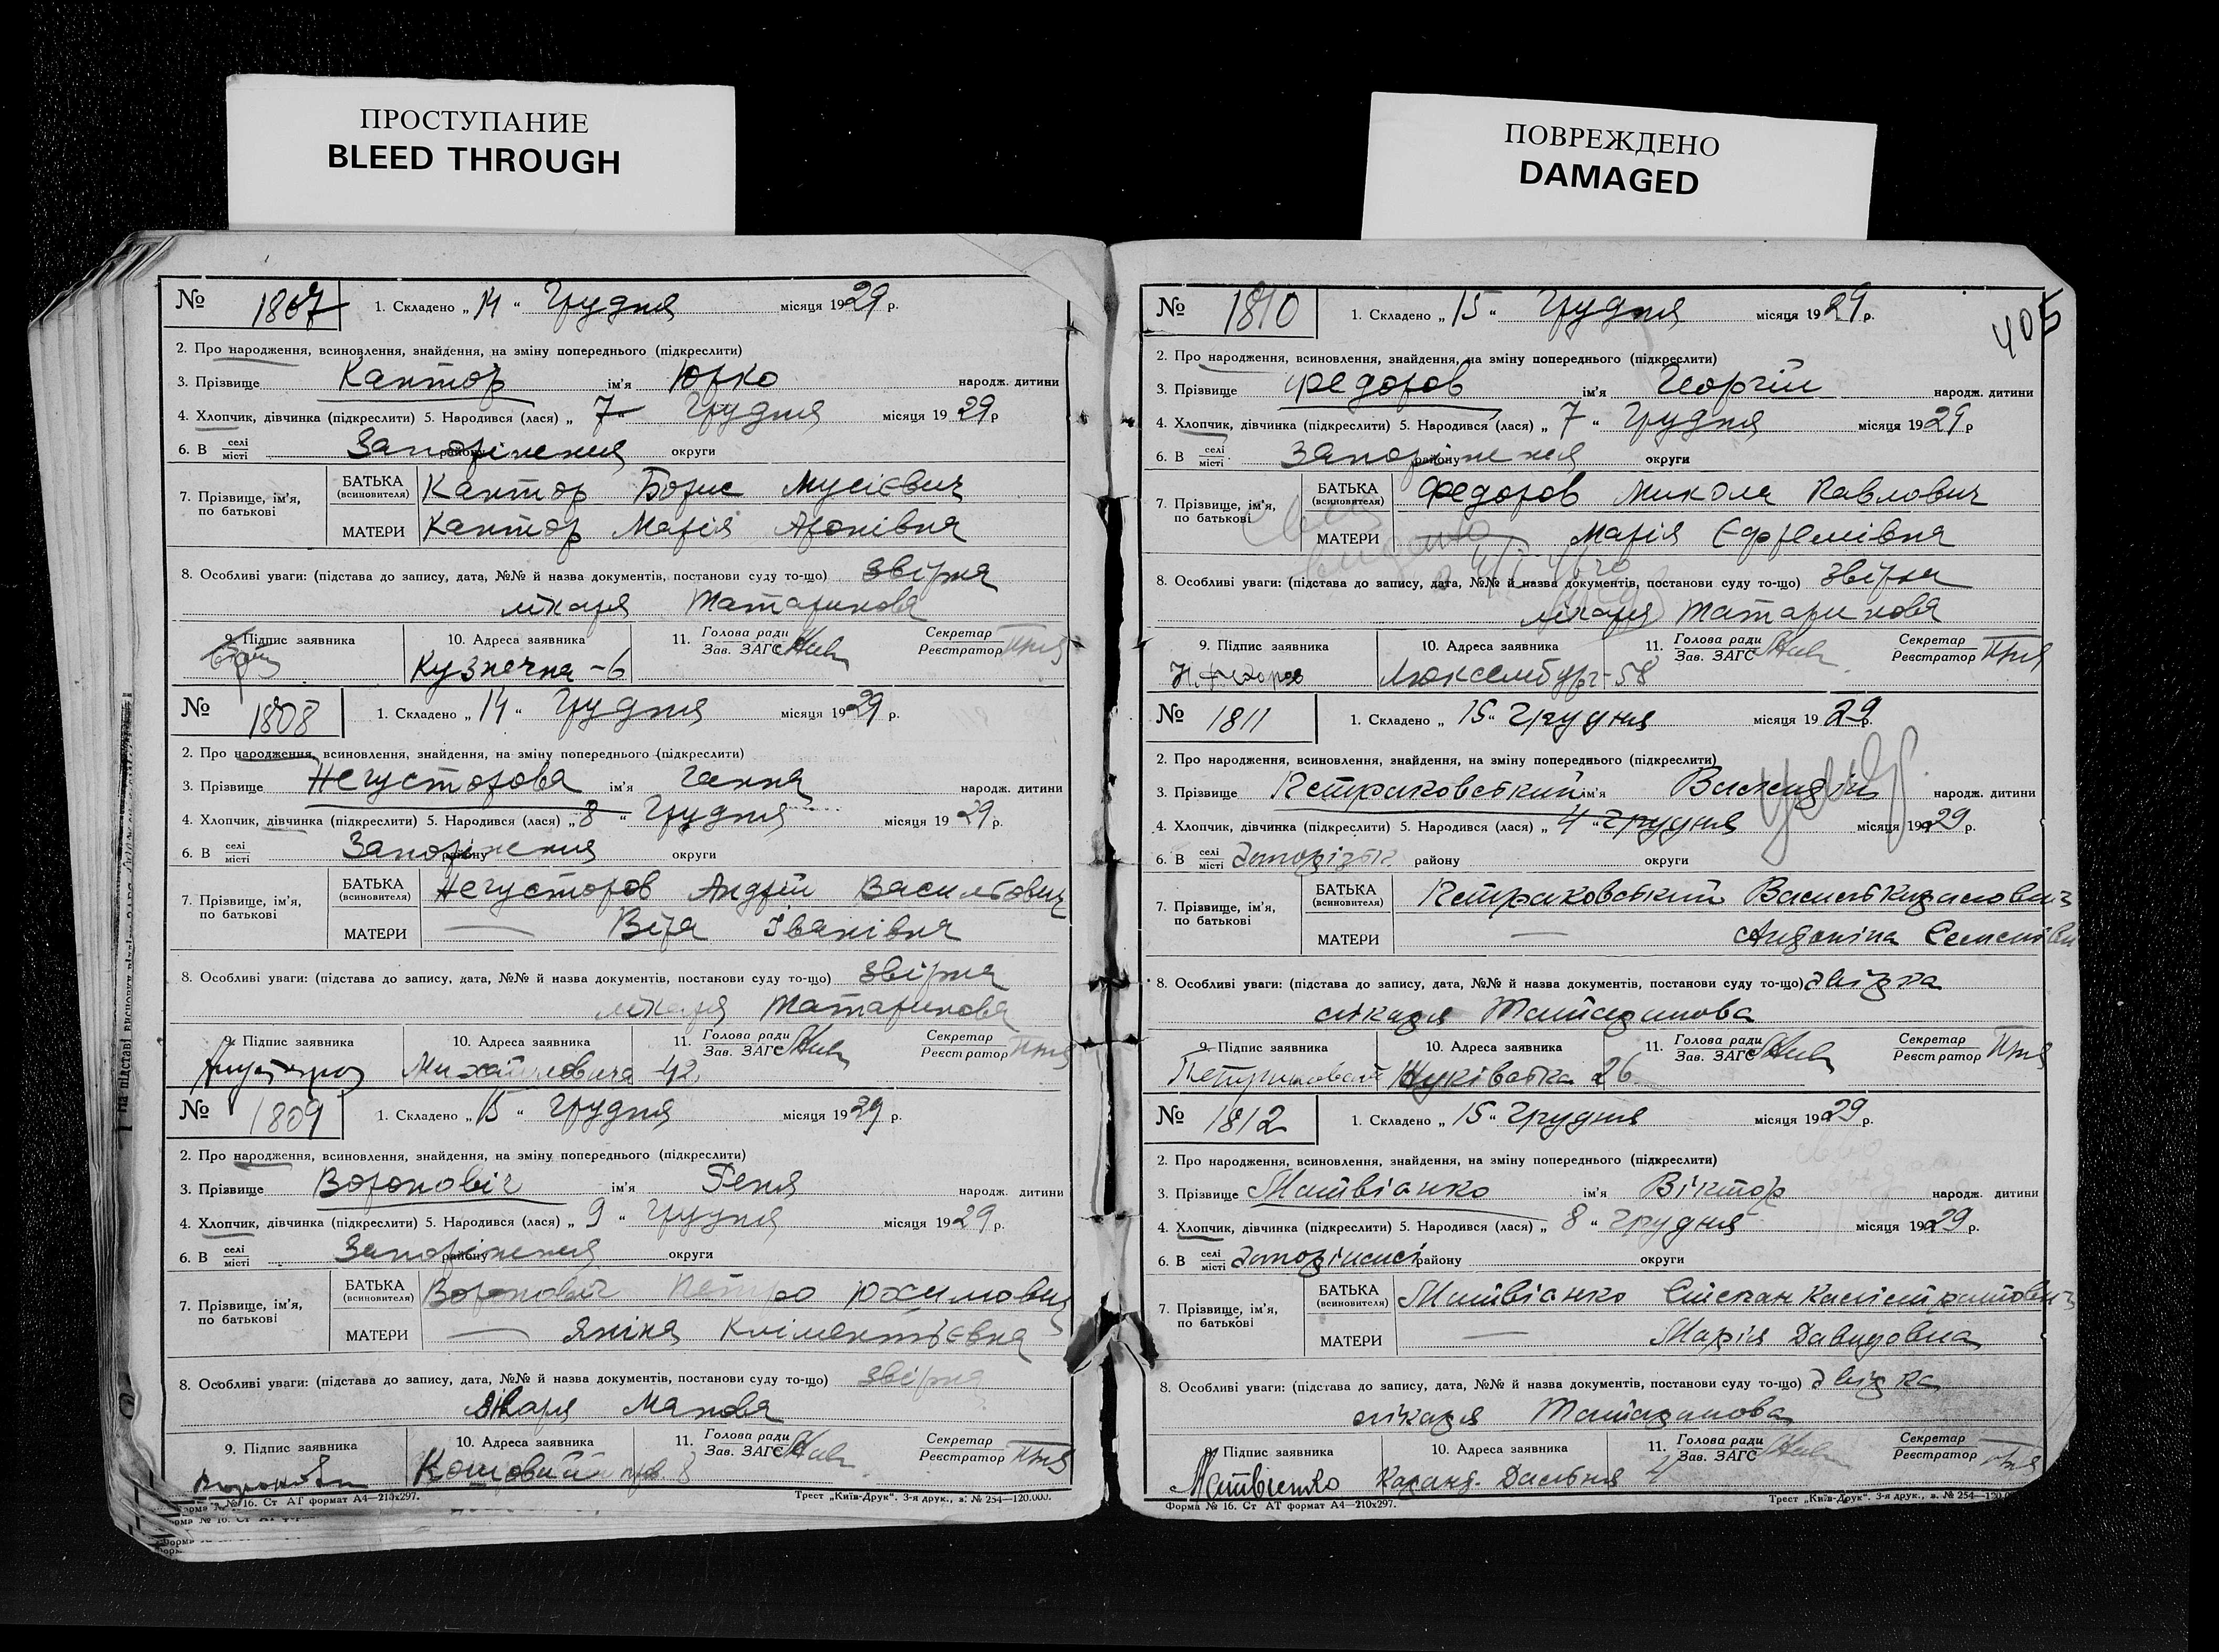 ПРОСТУПАНИЕ
BLEED THROUGH
ПОВРЕЖДЕНО
DAMAGED
№ 1807 1. Складено „14“ Грудня місяця 1929 р.
2. Про народження, всиновлення, знайдення, на зміну попереднього (підкреслити)
3. Прізвище Кантор ім'я Юрко народж. дитини
4. Хлопчик, дівчинка (підкреслити) 5. Народився (лася) „7“ Грудня місяця 1929 р
6. В селі місті Запоріжжя району округи
7. Прізвище, ім'я, по батькові
БАТЬКА (всиновителя) Кантор Борис Мусієвич
МАТЕРИ Кантор Марія Аронівна
8. Особливі уваги: (підстава до запису, дата, №№ й назва документів, постанови суду то-що) звірка
лікаря Татаринова
9. Підпис заявника 10. Адреса заявника 11. Голова ради Зав. ЗАГС Секретар Реєстратор
Кузнечна-6
№ 1808 1. Складено „14“ Грудня місяця 1929 р.
2. Про народження, всиновлення, знайдення, на зміну попереднього (підкреслити)
3. Прізвище Негусторова ім'я Ганна народж. дитини
4. Хлопчик, дівчинка (підкреслити) 5. Народився (лася) „8“ Грудня місяця 1929 р.
6. В селі місті Запоріжжя району округи
7. Прізвище, ім'я, по батькові
БАТЬКА (всиновителя) Негусторов Андрій Васильович
МАТЕРИ — Віра Іванівна
8. Особливі уваги: (підстава до запису, дата, №№ й назва документів, постанови суду то-що) звірка
лікаря Татаринова
9. Підпис заявника 10. Адреса заявника 11. Голова ради Зав. ЗАГС Секретар Реєстратор
Михайловича-42
№ 1809 1. Складено „15“ Грудня місяця 1929 р.
2. Про народження, всиновлення, знайдення, на зміну попереднього (підкреслити)
3. Прізвище Воронович ім'я Геня народж. дитини
4. Хлопчик, дівчинка (підкреслити) 5. Народився (лася) „9“ Грудня місяця 1929 р.
6. В селі місті Запоріжжя району округи
7. Прізвище, ім'я, по батькові
БАТЬКА (всиновителя) Воронович Петро Юхимович
МАТЕРИ — Яніна Кліментіевна
8. Особливі уваги: (підстава до запису, дата, №№ й назва документів, постанови суду то-що) звірка
лікаря
9. Підпис заявника 10. Адреса заявника 11. Голова ради Зав. ЗАГС Секретар Реєстратор
Кошовий 8
Форма № 16. Ст АТ формат А4—210х297. Трест „Київ-Друк“. 3-я друк., з. № 254—120.000.
405
№ 1810 1. Складено „15“ Грудня місяця 1929 р.
2. Про народження, всиновлення, знайдення, на зміну попереднього (підкреслити)
3. Прізвище Федоров ім'я Георгій народж. дитини
4. Хлопчик, дівчинка (підкреслити) 5. Народився (лася) „7“ Грудня місяця 1929 р
6. В селі місті Запоріжжя району округи
7. Прізвище, ім'я, по батькові
БАТЬКА (всиновителя) Федоров Микола Павлович
МАТЕРИ — Марія Єфремівна
8. Особливі уваги: (підстава до запису, дата, №№ й назва документів, постанови суду то-що) звірка
лікаря Татаринова
9. Підпис заявника 10. Адреса заявника 11. Голова ради Зав. ЗАГС Секретар Реєстратор
Н. Федоров Люксембург-58
№ 1811 1. Складено „15“ Грудня місяця 1929 р.
2. Про народження, всиновлення, знайдення, на зміну попереднього (підкреслити)
3. Прізвище Петраковський ім'я народж. дитини
4. Хлопчик, дівчинка (підкреслити) 5. Народився (лася) „4“ Грудня місяця 1929 р.
6. В селі місті району округи
7. Прізвище, ім'я, по батькові
БАТЬКА (всиновителя) Петраковський
МАТЕРИ — Андоніна
8. Особливі уваги: (підстава до запису, дата, №№ й назва документів, постанови суду то-що) звірка
лікаря Татаринова
9. Підпис заявника 10. Адреса заявника 11. Голова ради Зав. ЗАГС Секретар Реєстратор
26
№ 1812 1. Складено „15“ Грудня місяця 1929 р.
2. Про народження, всиновлення, знайдення, на зміну попереднього (підкреслити)
3. Прізвище Матвіэнко ім'я Віктор народж. дитини
4. Хлопчик, дівчинка (підкреслити) 5. Народився (лася) „8“ Грудня місяця 1929 р.
6. В селі місті Запоріжжі району округи
7. Прізвище, ім'я, по батькові
БАТЬКА (всиновителя) Матвіэнко Степан Калістратович
МАТЕРИ — Марія Давидовна
8. Особливі уваги: (підстава до запису, дата, №№ й назва документів, постанови суду то-що) звірка
лікаря Татаринова
9. Підпис заявника 10. Адреса заявника 11. Голова ради Зав. ЗАГС Секретар Реєстратор
Матвіенко Дальня 4
Форма № 16. Ст АТ формат А4—210х297. Трест „Київ-Друк“. 3-я друк., з. № 254—120.0